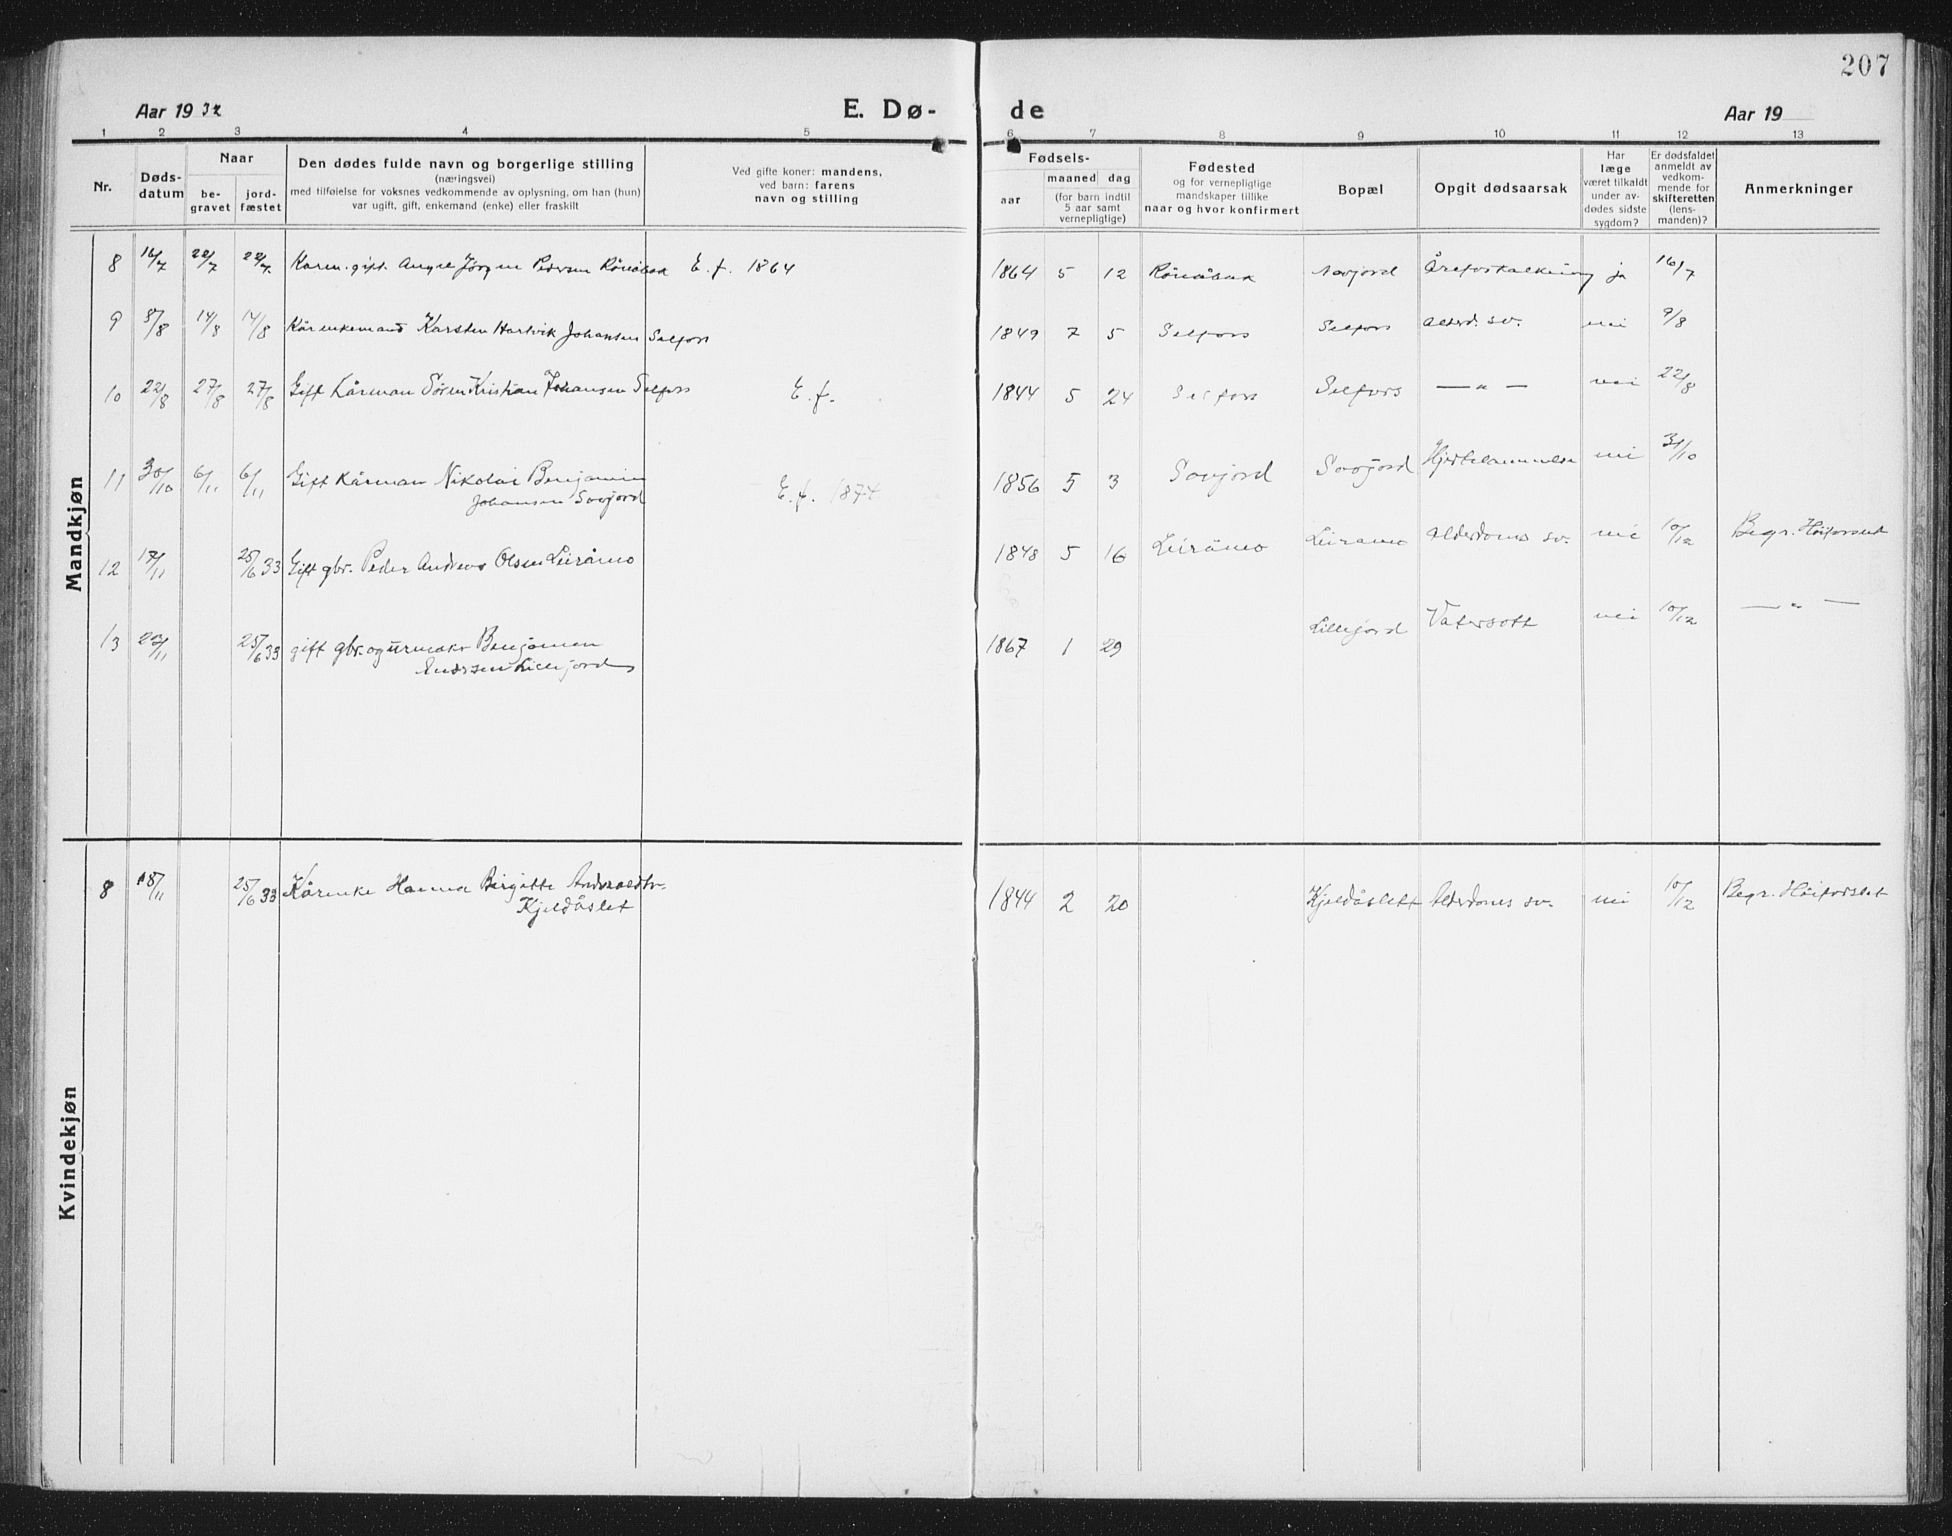 207
Aar 1932 E. Dø- de Aar 19
1 2 3 4 5 6 7 8 9 10 11 12 13
Nr.
Døds-
datum
Naar
be-
gravet
jord-
fæstet
Den dødes fulde navn og borgerlige stilling
(næringsvei)
med tilføielse for voksnes vedkommende av oplysning, om han (hun)
var ugift, gift, enkemand (enke) eller fraskilt
Ved gifte koner: mandens,
ved barn: farens
navn og stilling
Fødsels-
aar
maaned dag
(for barn indtil
5 aar samt
vernepligtige)
Fødested
og for vernepligtige
mandskaper tillike
naar og hvor konfirmert
Bopæl
Opgit dødsaarsak
Har
læge
været tilkaldt
under av-
dødes sidste
sygdom?
Er dødsfaldet
anmeldt av
vedkom-
mende for
skifteretten
(lens-
manden)?
Anmerkninger
Mandkjøn
8 16/7 22/7 22/7 gift Jörgen Pedersen Rönåbak E. f. 1864 1864 5 12 Rönåbak Åreforkalkning ja 16/7
9 8/8 14/8 14/8 Kårenkemand Karsten Hartvik Johansen Selfors 1849 7 5 Selfors Selfors Alderd. sv. nei 9/8
10 22/8 27/8 27/8 Gift kårman Sören Kristian Johansen Selfors E. f. 1844 5 24 Selfors Selfors — " — nei 22/8
11 30/10 6/11 6/11 Gift kårman Nikolai Benjamin
Johansen Sovjord E. f. 1874 1856 5 3 Sovjord Sovjord Hjertelammelse nei 31/10
12 17/11 25/6 33 Gift gbr. Peder Andreas Olsen Leiråmo 1848 5 16 Leiråmo Leiråmo Alderdoms sv. nei 10/12 Begr. Höiforslet
13 22/11 25/6 33 gift gbr. og urmaker Benjamen
Andersen Lillejord 1867 1 29 Lillejord Vatersott nei 10/12 — " —
Kvindekjøn
8 18/11 25/6 33 Kårenke Hanna Birgitte Andreasdtr.
Kjeldåslet 1844 2 20 Kjeldåslett Alderdoms sv. nei 10/12 Begr. Höiforslet